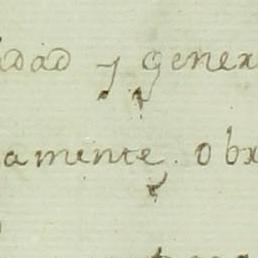 dad y gener
amente. obr